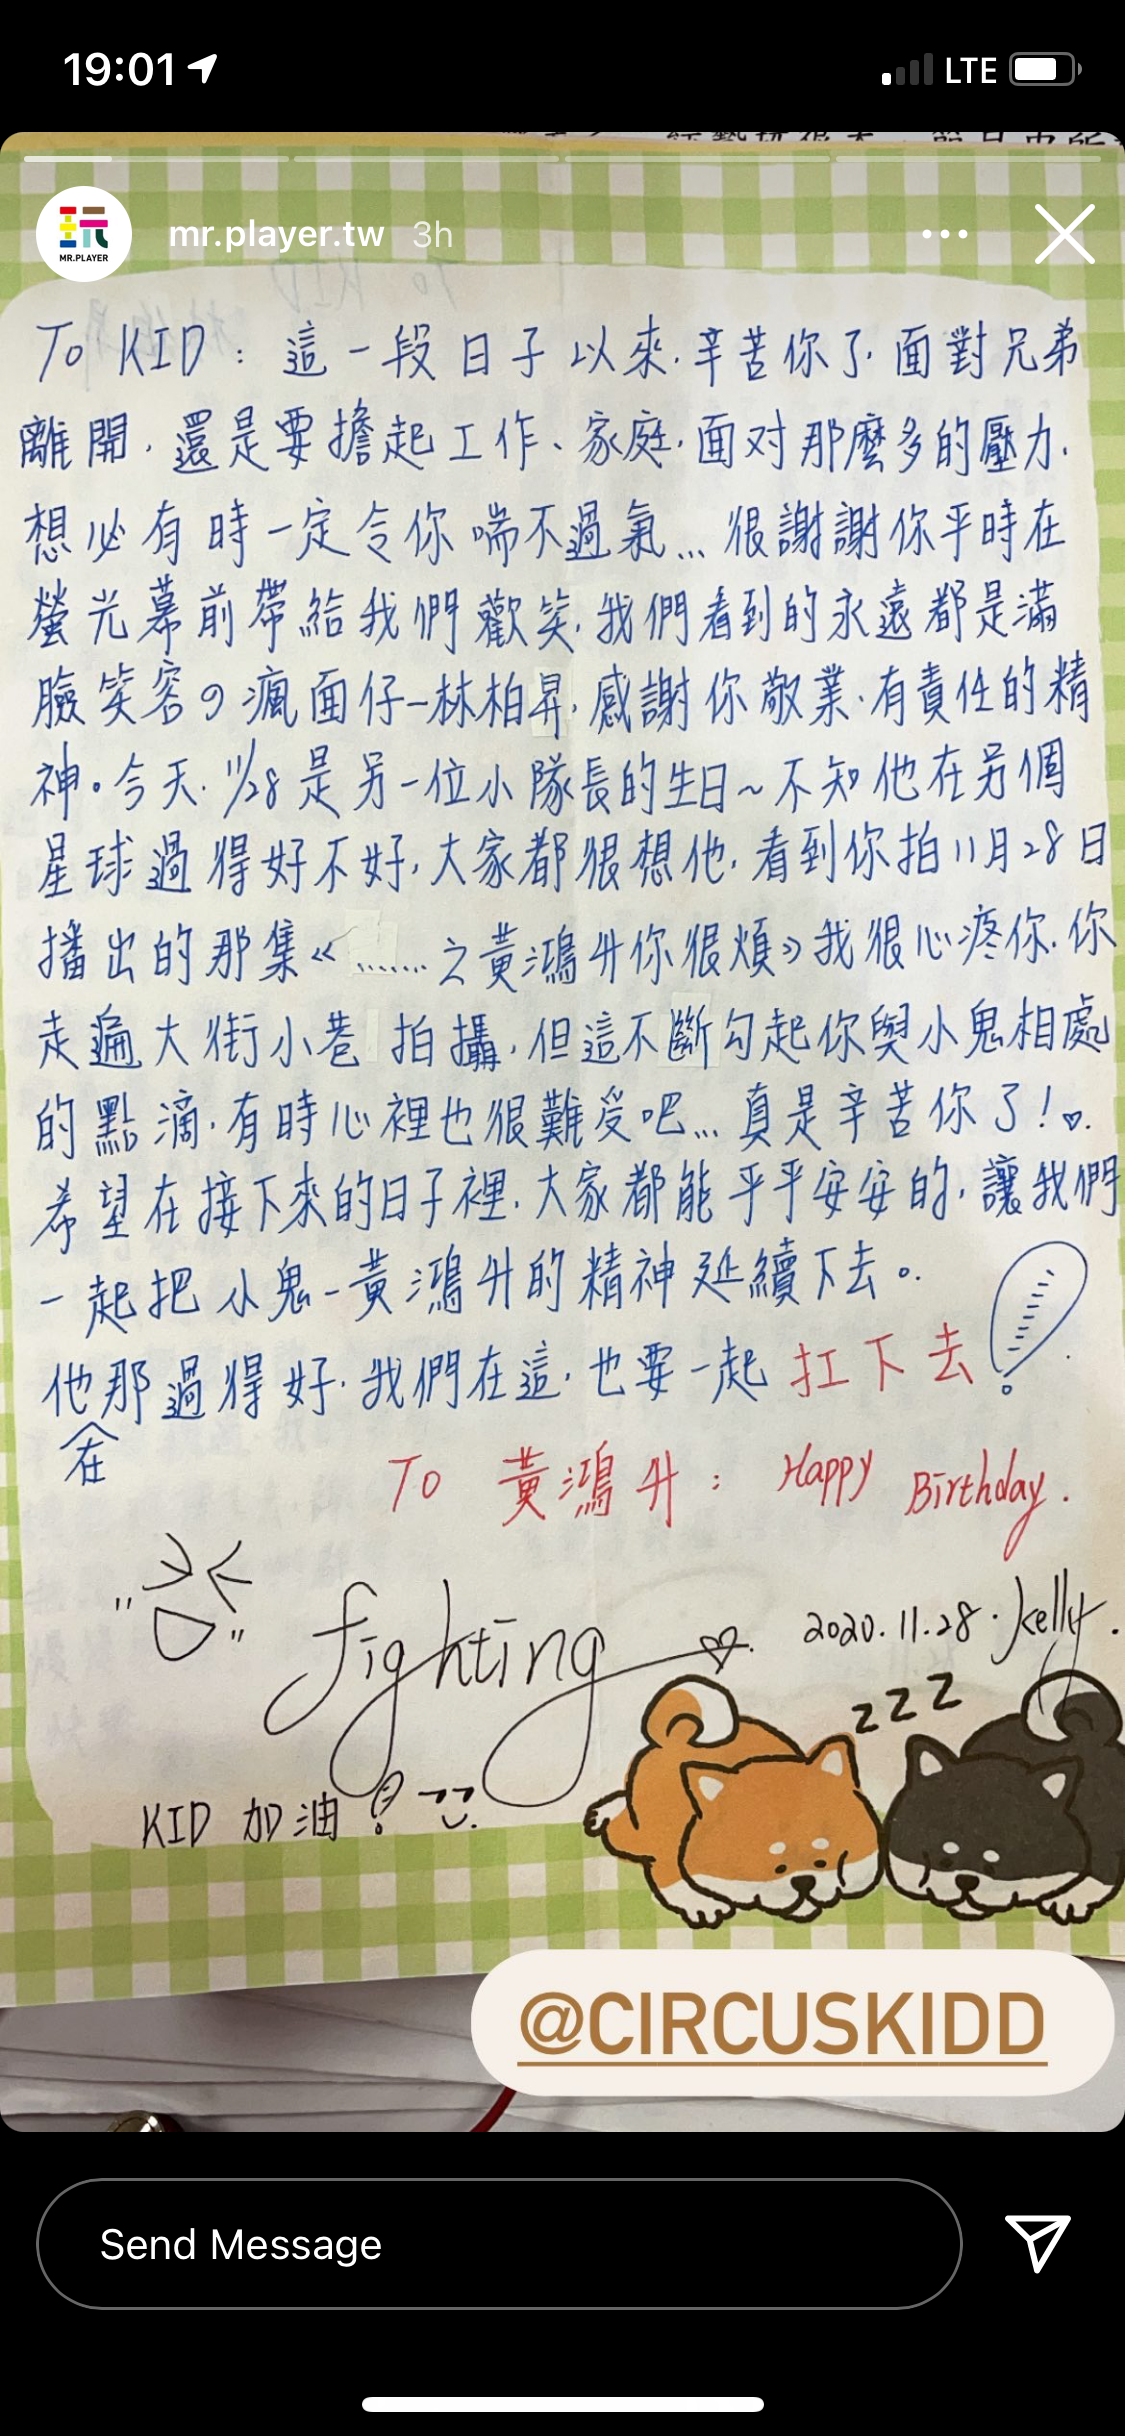 19:01
LTE
mr.player.tw 3h
玩
MR.PLAYER
To KID：這一段日子以來，辛苦你了，面對兄弟
離開，還是要擔起工作、家庭，面对那麼多的壓力，
想必有時一定令你喘不過氣...很謝謝你平時在
螢光幕前帶給我們歡笑，我們看到的永遠都是滿
臉笑容の瘋面仔-林柏昇，感謝你敬業、有責任的精
神。今天，11/28是另一位小隊長的生日~不知他在另個
星球過得好不好，大家都很想他，看到你拍11月28日
播出的那集《.......之黃鴻升你很煩》我很心疼你，你
走遍大街小巷拍攝，但這不斷勾起你與小鬼相處
的點滴，有時心裡也很難受吧...真是辛苦你了!♡.
希望在接下來的日子裡，大家都能平平安安的，讓我們
一起把小鬼-黃鴻升的精神延續下去。
他那過得好，我們在這，也要一起扛下去!
在
To 黃鴻升：Happy Birthday.
fighting ♡.
2020.11.28.Kelly.
zzz
KID 加油!
@CIRCUSKIDD
Send Message